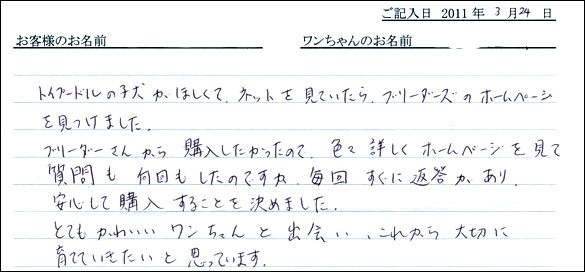 ご記入日 2011 年 3 月 24 日
お客様のお名前 ワンちゃんのお名前
トイプードルの子犬がほしくて、ネットを見ていたら、ブリーダーズのホームページ
を見つけました。
ブリーダーさんから購入したかったので、色々詳しくホームページを見て
質問も何回もしたのですが、毎回すぐに返答があり、
安心して購入することを決めました。
とてもかわいいワンちゃんと出会い、これから大切に
育てていきたいと思っています。